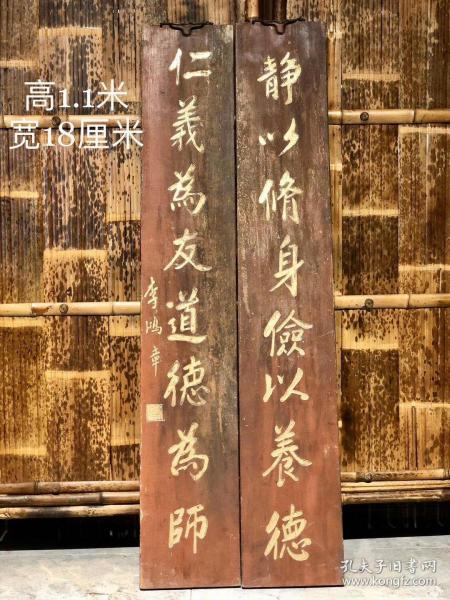 高1.1米
宽18厘米
静以脩身儉以養德
仁義為友道德為師
李鴻章
孔夫子旧书网
www.kongfz.com